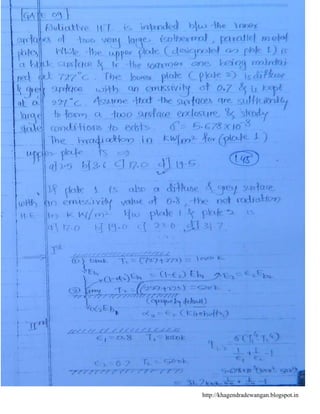 [GATE 09]
Radiative H.T. is intended b/w the inner
surfaces of two very large isothermal, parallel metal
plates. While the upper plate (designated as plate 1) is
a black surface & is the warmer one being maintai-
ned at 727°C. The lower plate (plate 2) is diffuse
& grey surface with an emissivity of 0.7 & is kept
at a 227°C. Assume that the surfaces are sufficiently
large to form a two surface enclosure & steady
state conditions to exists. σ = 5.67×10⁻⁸
The irradiation in kW/m² for (plate 1)
upper plate is
a) 2.5 b) 3.6 c) 17.0 d) 19.5
If plate 1 is also a diffuse & grey surface
with an emissivity value of 0.8, the net radiation
H.E. in kW/m² b/w plate 1 & plate 2 is
a) 17.0 b) 19.0 c) 23.0 d) 31.7
Iˢᵗ
① black T₁ = (727+273) = 1000 K
Eb₁
(1-ε₂)Eb₁ = (1-ε₂) Eb₁ E₂ = ε₂Eb₂
② grey T₂ = (227+273) = 500K
(opaque by default)
α₂Eb₁
α₂ = ε₂ (Kirchoff's)
IInd
ε₁ = 0.8 T₁ = 1000K
σ(T₁⁴-T₂⁴)
1/ε₁ + 1/ε₂ - 1
ε₂ = 0.7 T₂ = 500K
http://khagendradewangan.blogspot.in